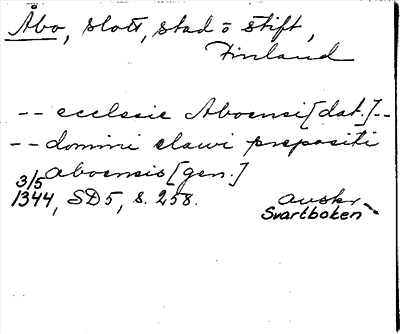 Åbo, slott, stad o stift,
Finland
-- ecclesie Aboensi [dat.] --
-- domini elawi prepositi
aboensis [gen.]
3/5
1344, SD 5, s. 258. avskr.
Svartboken